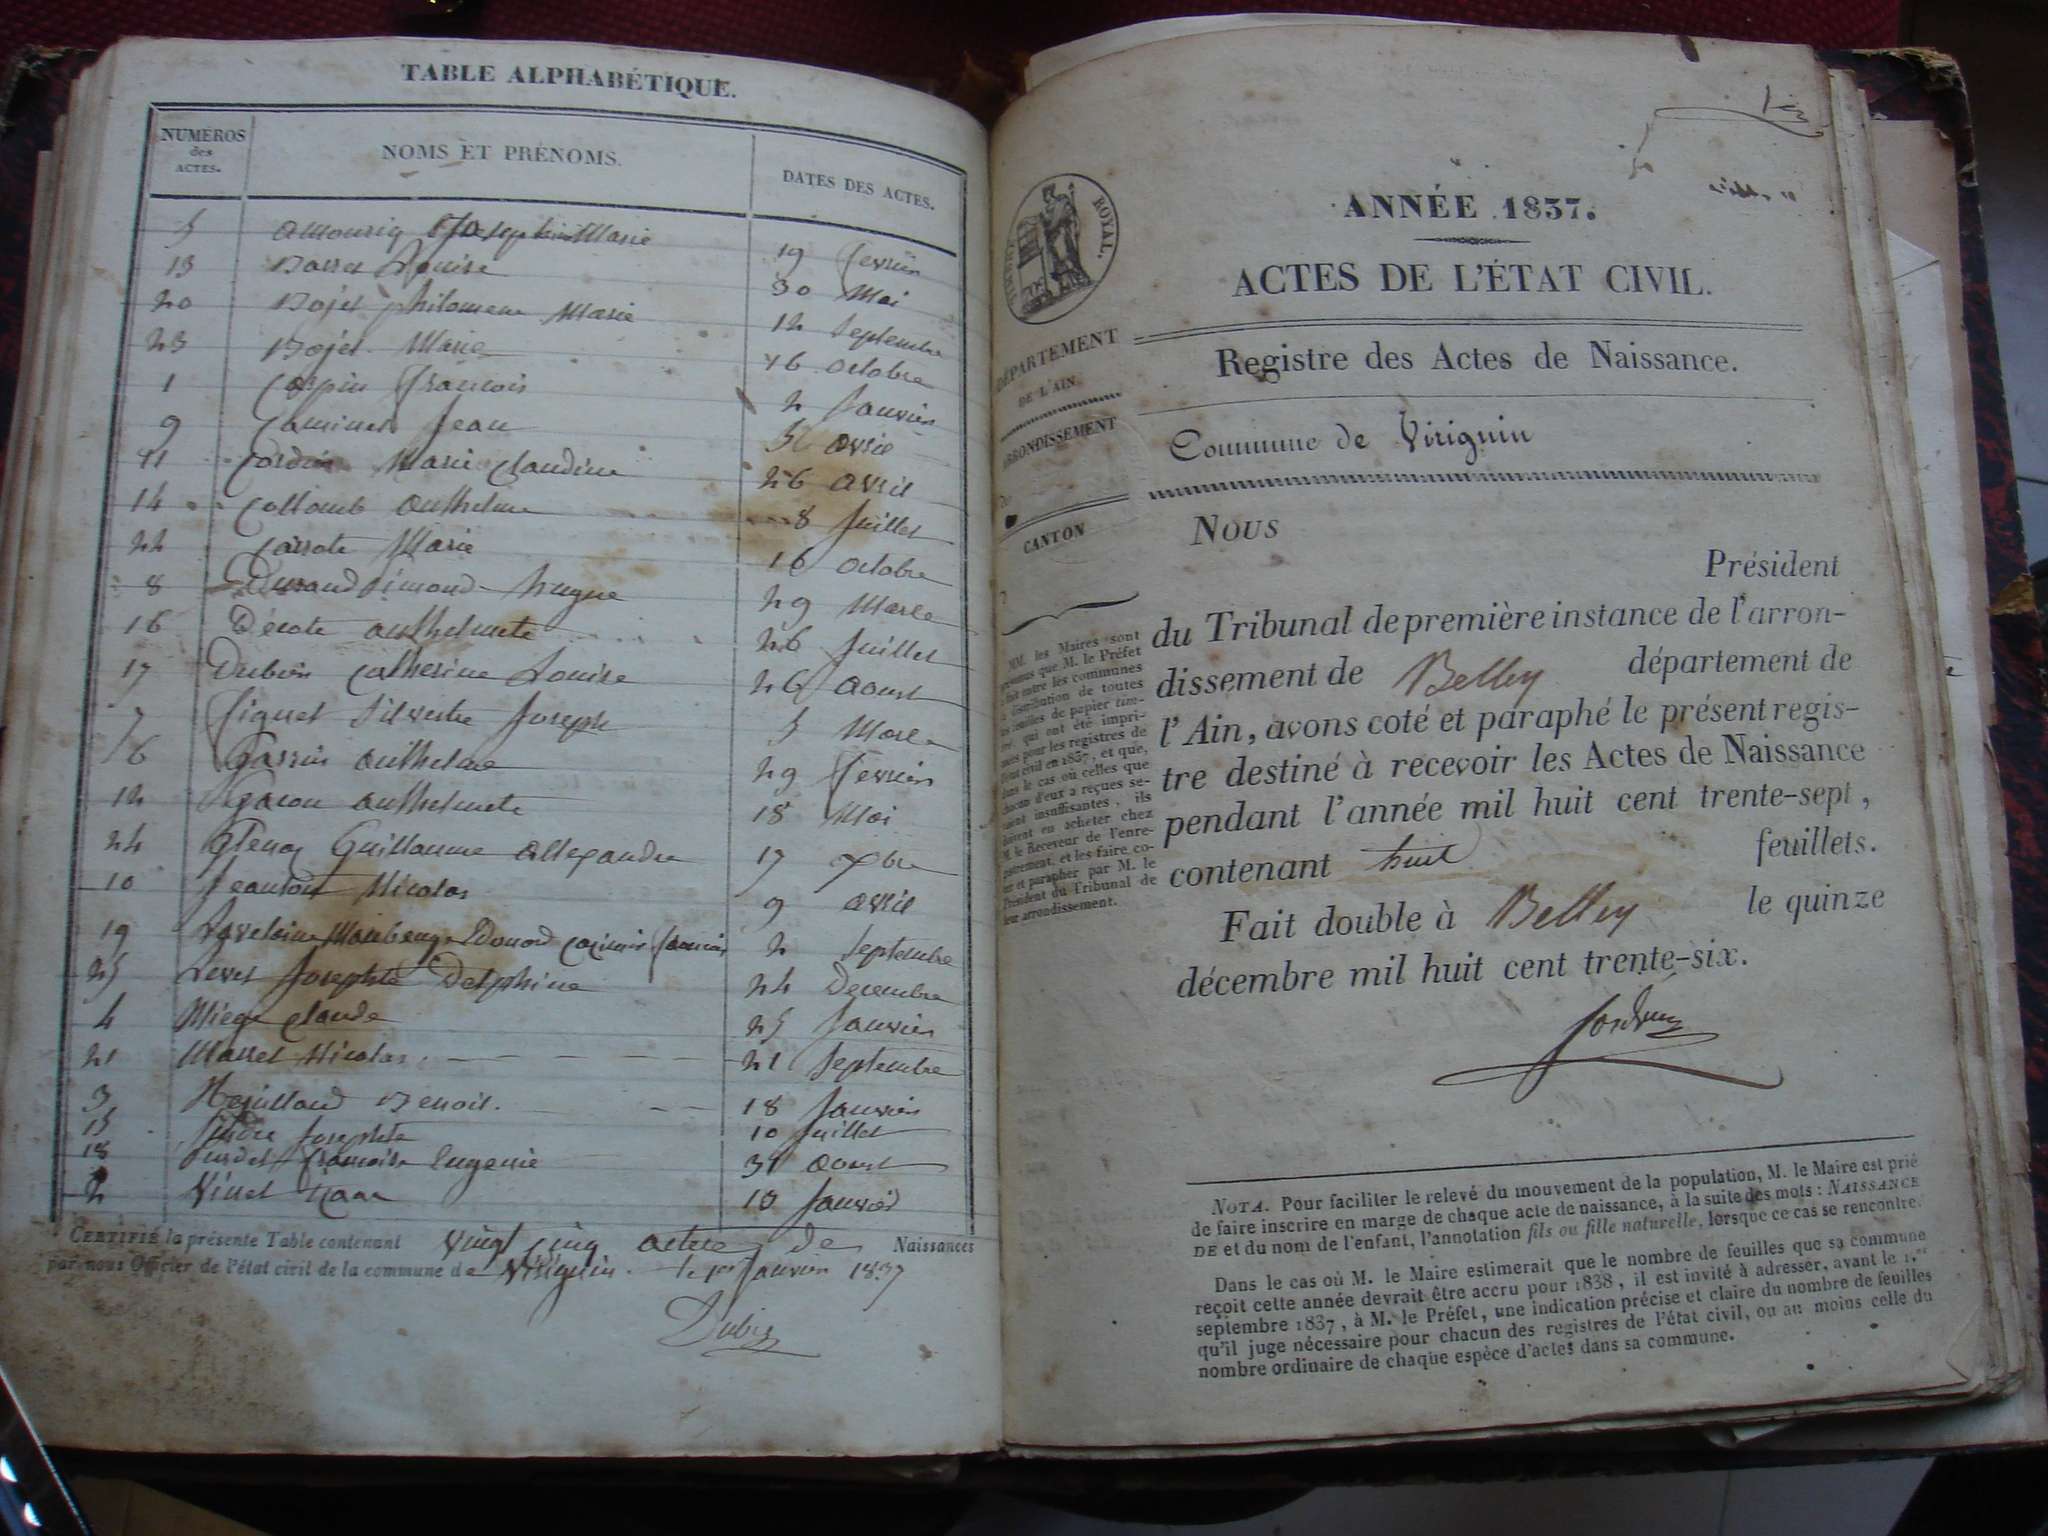 TABLE ALPHABÉTIQUE.
NUMÉROS des ACTES. NOMS ET PRÉNOMS. DATES DES ACTES.
5 Marie 19 fevrier
13 Louise 30 Mai
20 philomene Marie 12 Septembre
23 Marie 16 octobre
1 francois 2 Janvier
9 Jean avril
11 Marie Claudine 26 avril
14 Collomb anthelme 8 Juillet
22 Marie 16 octobre
8 Durand Simond 29 Mars
16 anthelmete 26 Juillet
17 Dubois Catherine Louise 26 aoust
7 Silvestre Joseph 5 Mars
6 anthelme 29 fevrier
12 anthelmete 18 Mai
24 Guillaume allexandre 17 xbre
10 Nicolas 9 avril
19 Edouard 2 Septembre
25 Josephte Delphine 24 Decembre
4 Miege Claude 25 Janvier
21 Nicolas 21 Septembre
3 Benoit. 18 Janvier
15 Josephte 10 Juillet
18 francoise Eugenie 31 aoust
2 10 Janvier
CERTIFIÉ la présente Table contenant vingt cinq actes de Naissances
par nous Officier de l'état civil de la commune de Virignin le 1er Janvier 1837
ANNÉE 1837.
ACTES DE L'ÉTAT CIVIL.
TIMBRE ROYAL.
DÉPARTEMENT
DE L'AIN
ARRONDISSEMENT
CANTON
Registre des Actes de Naissance.
Commune de Virignin
MM. les Maires sont
prévenus que M. le Préfet
fait entre les communes
la distribution de toutes
les feuilles de papier tim-
bré qui ont été impri-
mées pour les registres de
l'état civil en 1837, et que,
dans le cas où celles que
chacun d'eux a reçues se-
raient insuffisantes, ils
doivent en acheter chez
M. le Receveur de l'enre-
gistrement, et les faire co-
ter et parapher par M. le
Président du Tribunal de
leur arrondissement.
NOUS
Président
du Tribunal de première instance de l'arron-
dissement de Belley département de
l'Ain, avons coté et paraphé le présent regis-
tre destiné à recevoir les Actes de Naissance
pendant l'année mil huit cent trente-sept,
contenant huit feuillets.
Fait double à Belley le quinze
décembre mil huit cent trente-six.
NOTA. Pour faciliter le relevé du mouvement de la population, M. le Maire est prié
de faire inscrire en marge de chaque acte de naissance, à la suite des mots : NAISSANCE
DE et du nom de l'enfant, l'annotation fils ou fille naturelle, lorsque ce cas se rencontre.
Dans le cas où M. le Maire estimerait que le nombre de feuilles que sa commune
reçoit cette année devrait être accru pour 1838, il est invité à adresser, avant le 1.er
septembre 1837, à M. le Préfet, une indication précise et claire du nombre de feuilles
qu'il juge nécessaire pour chacun des registres de l'état civil, ou au moins celle du
nombre ordinaire de chaque espèce d'actes dans sa commune.